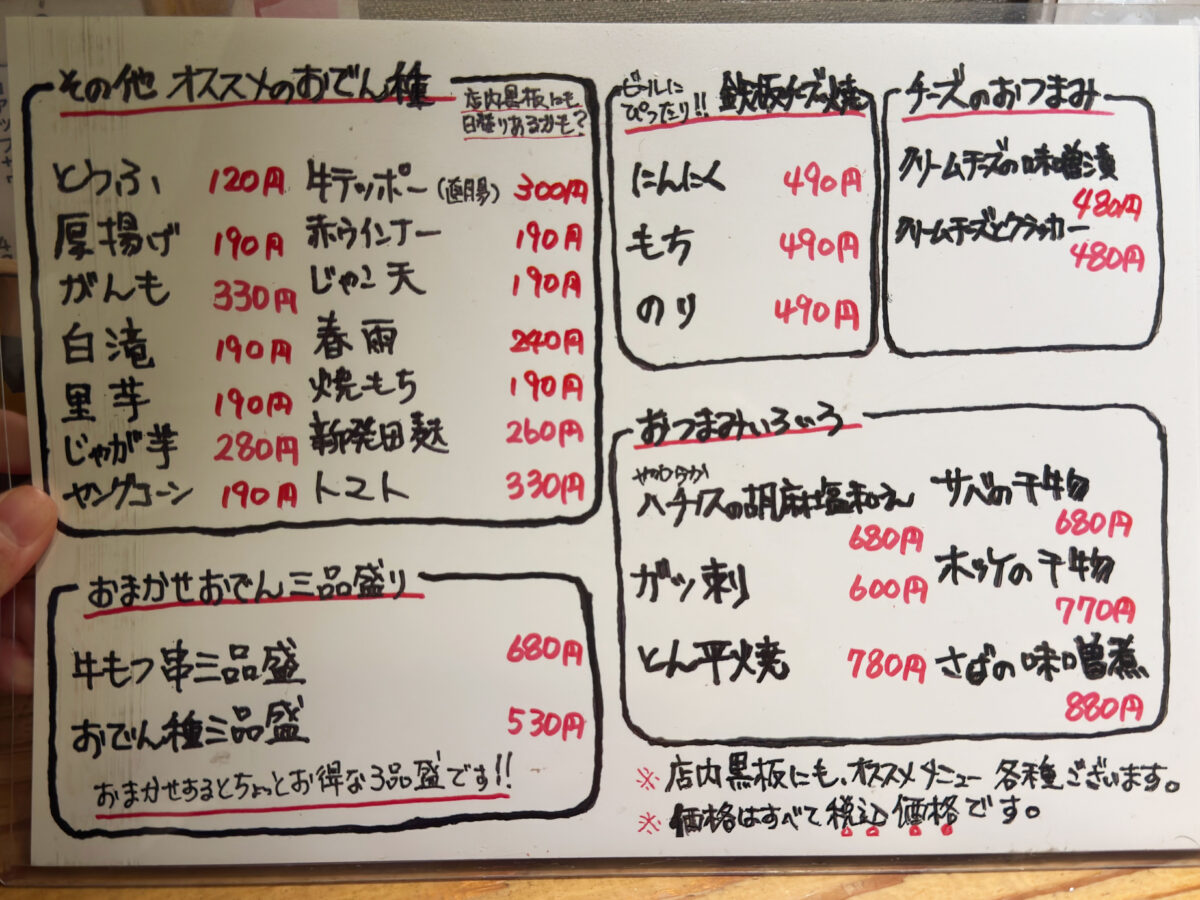 その他 オススメのおでん種
店内黒板にも
日替りあるかも?
とうふ 120円
厚揚げ 190円
がんも 330円
白滝 190円
里芋 190円
じゃが芋 280円
ヤングコーン 190円
牛テッポー(直腸) 300円
赤ウインナー 190円
じゃこ天 190円
春雨 240円
焼もち 190円
新発田麩 260円
トマト 330円
おまかせおでん三品盛り
牛もつ串三品盛 680円
おでん種三品盛 530円
おまかせするとちょっとお得な3品盛です!!
ビールに
ぴったり!! 鉄板チーズ焼
にんにく 490円
もち 490円
のり 490円
チーズのおつまみ
クリームチーズの味噌漬
480円
クリームチーズとクラッカー
480円
おつまみいろいろ
やわらか
ハチノスの胡麻塩和え
680円
ガツ刺 600円
とん平焼 780円
サバの干物
680円
ホッケの干物
770円
さばの味噌煮
880円
※店内黒板にも、オススメメニュー各種ございます。
※価格はすべて税込価格です。